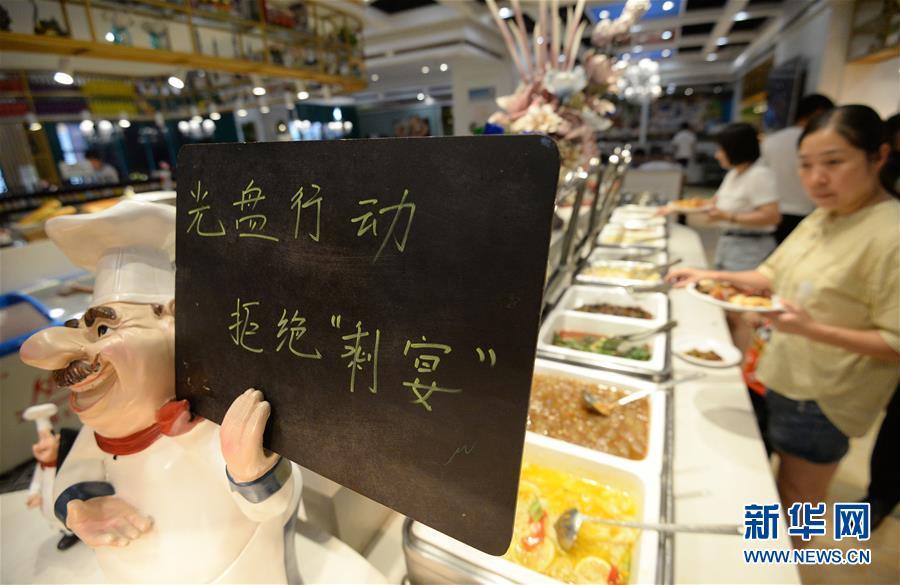 光盘行动
拒绝“剩宴”
新华网
WWW.NEWS.CN